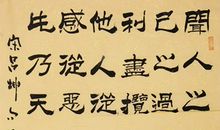 聞人之
己之過
利盡攬
他人從
感從惡
乃天
宋吕坤